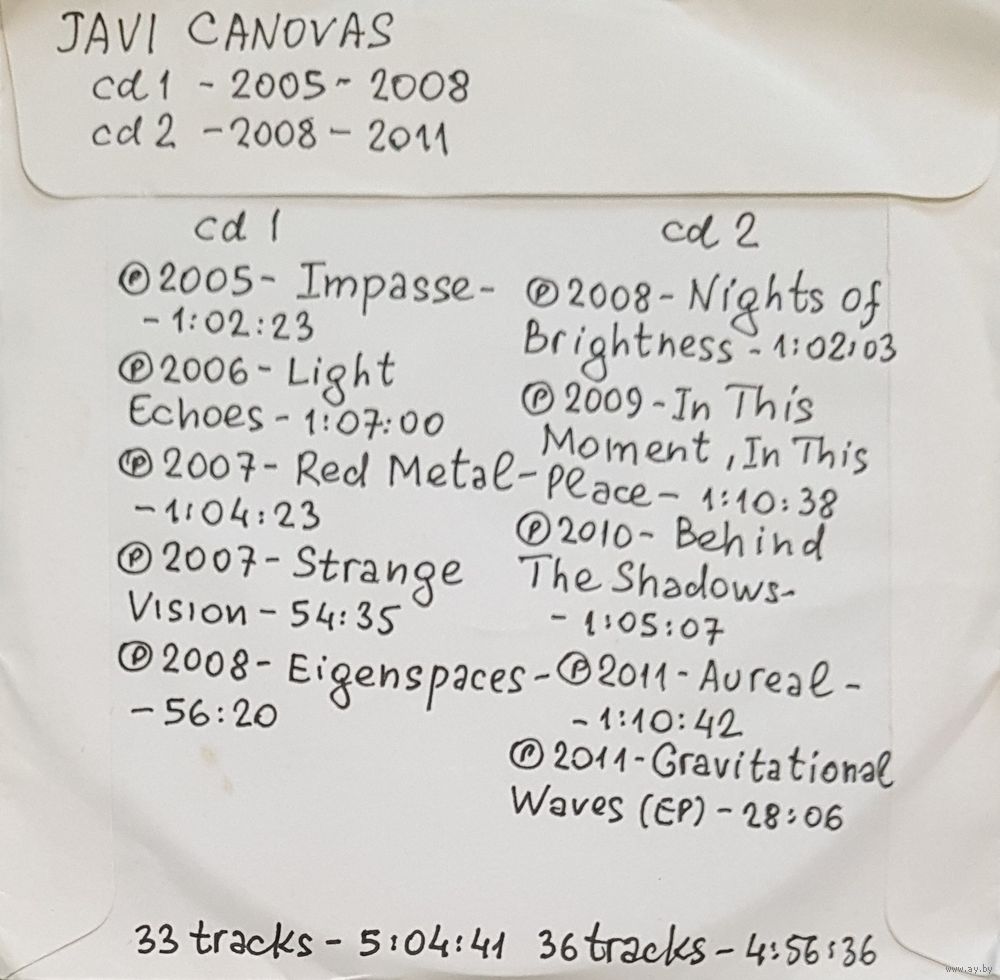 JAVI CANOVAS
cd 1 - 2005 - 2008
cd 2 - 2008 - 2011
cd 1
℗ 2005 - Impasse -
- 1:02:23
℗ 2006 - Light
Echoes - 1:07:00
℗ 2007 - Red Metal -
- 1:04:23
℗ 2007 - Strange
Vision - 54:35
℗ 2008 - Eigenspaces -
- 56:20
33 tracks - 5:04:41
cd 2
℗ 2008 - Nights of
Brightness - 1:02:03
℗ 2009 - In This
Moment, In This
Pleace - 1:10:38
℗ 2010 - Behind
The Shadows -
- 1:05:07
℗ 2011 - Aureal -
- 1:10:42
℗ 2011 - Gravitational
Waves (EP) - 28:06
36 tracks - 4:56:36
www.ay.by